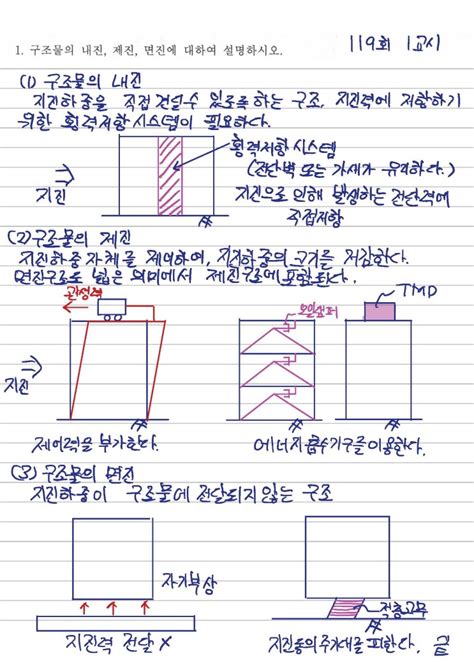 1. 구조물의 내진, 제진, 면진에 대하여 설명하시오.
119회 1교시
(1) 구조물의 내진
지진하중을 직접 견딜수 있도록하는 구조. 지진력에 저항하기
위한 횡력저항시스템이 필요하다.
횡력저항시스템
(전단벽 또는 가새가 유리하다.)
지진으로 인해 발생하는 전단력에
직접저항
지진
(2) 구조물의 제진
지진하중자체를 제어하여, 지진하중의 크기를 저감한다.
면진구조도 넓은 의미에서 제진구조에 포함된다.
관성력
오일댐퍼
TMD
지진
제어력을 부가한다.
에너지흡수기구를 이용한다.
(3) 구조물의 면진
지진하중이 구조물에 전달되지 않는 구조
자기부상
적층고무
지진력 전달 X
지진동의 주기대를 피한다. 끝